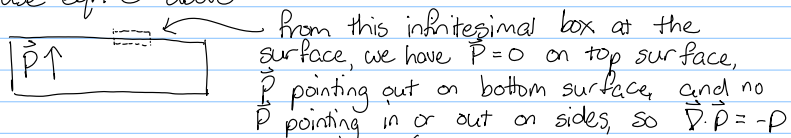 from this infinitesimal box at the
surface, we have P⃗ = 0 on top surface,
P⃗ ↑
P⃗ pointing out on bottom surface, and no
P⃗ pointing in or out on sides, so ∇⃗·P⃗ = -P